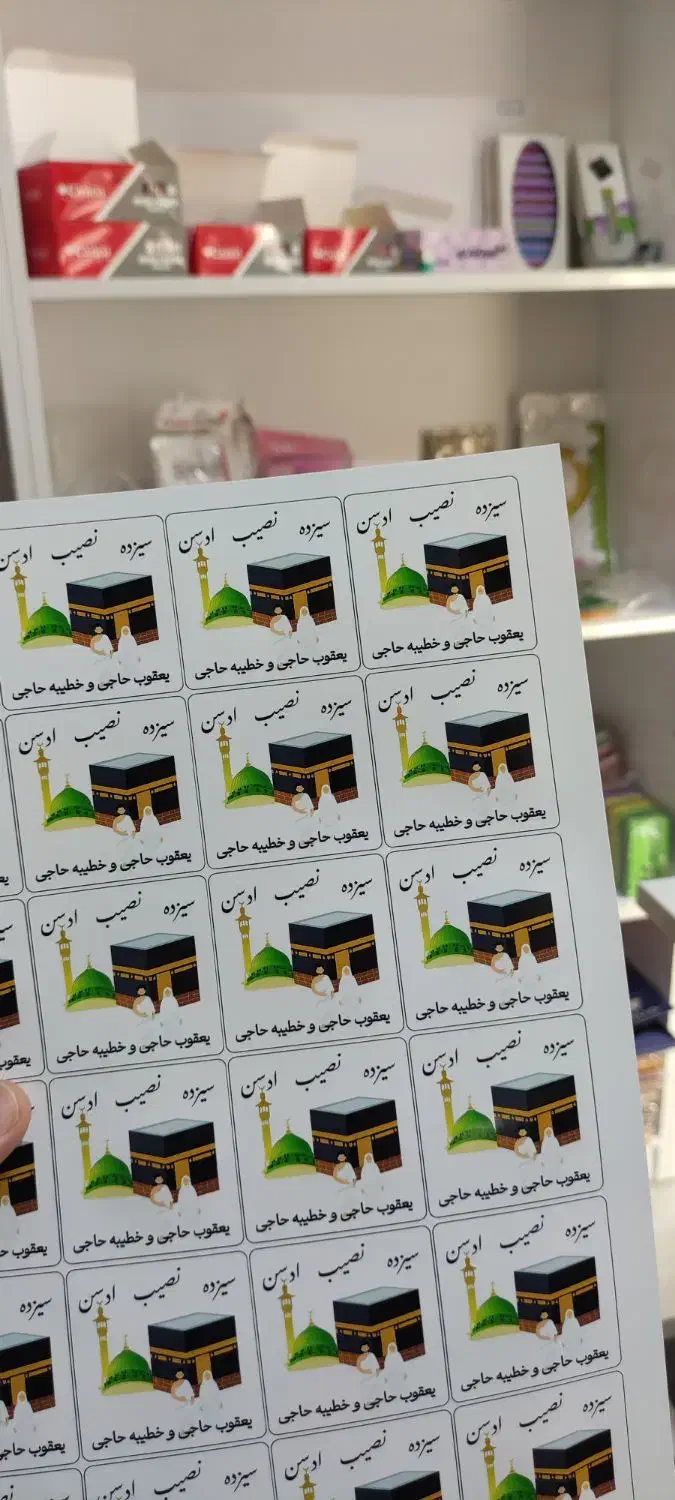 سیزده نصیب ادسن
یعقوب حاجی و خطیبه حاجی
سیزده نصیب ادسن
یعقوب حاجی و خطیبه حاجی
سیزده نصیب ادسن
یعقوب حاجی و خطیبه حاجی
سیزده نصیب ادسن
یعقوب حاجی و خطیبه حاجی
سیزده نصیب ادسن
یعقوب حاجی و خطیبه حاجی
سیزده نصیب ادسن
یعقوب حاجی و خطیبه حاجی
سیزده نصیب ادسن
یعقوب حاجی و خطیبه حاجی
سیزده نصیب ادسن
یعقوب حاجی و خطیبه حاجی
سیزده نصیب ادسن
یعقوب حاجی و خطیبه حاجی
سیزده نصیب ادسن
یعقوب حاجی و خطیبه حاجی
سیزده نصیب ادسن
یعقوب حاجی و خطیبه حاجی
سیزده نصیب ادسن
یعقوب حاجی و خطیبه حاجی
یعقوب
سیزده نصیب ادسن
یعقوب حاجی و خطیبه حاجی
سیزده نصیب ادسن
یعقوب حاجی و خطیبه حاجی
سیزده نصیب ادسن
یعقوب حاجی و خطیبه حاجی
سیزده
حاجی
سیزده نصیب ادسن
سیزده نصیب ادسن
سیزده نصیب ادسن